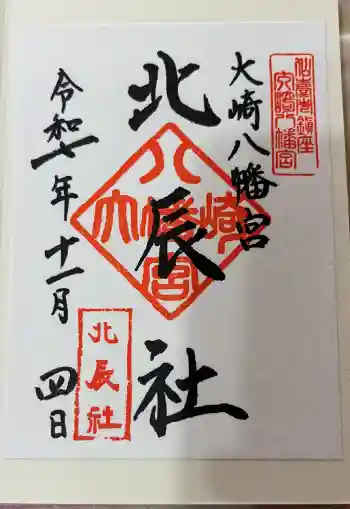 仙臺總鎮座
大崎八幡宮
大崎八幡宮
北辰社
大崎八幡宮
北辰社
令和七年十一月四日